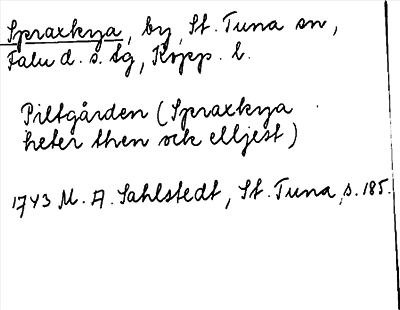 Spraxkya, by, St. Tuna sn,
Falu d. s. lg, Kopp. l.
Piltgården (Spraxkya
heter then ock elljest)
1743 M. A. Sahlstedt, St. Tuna, s. 185.